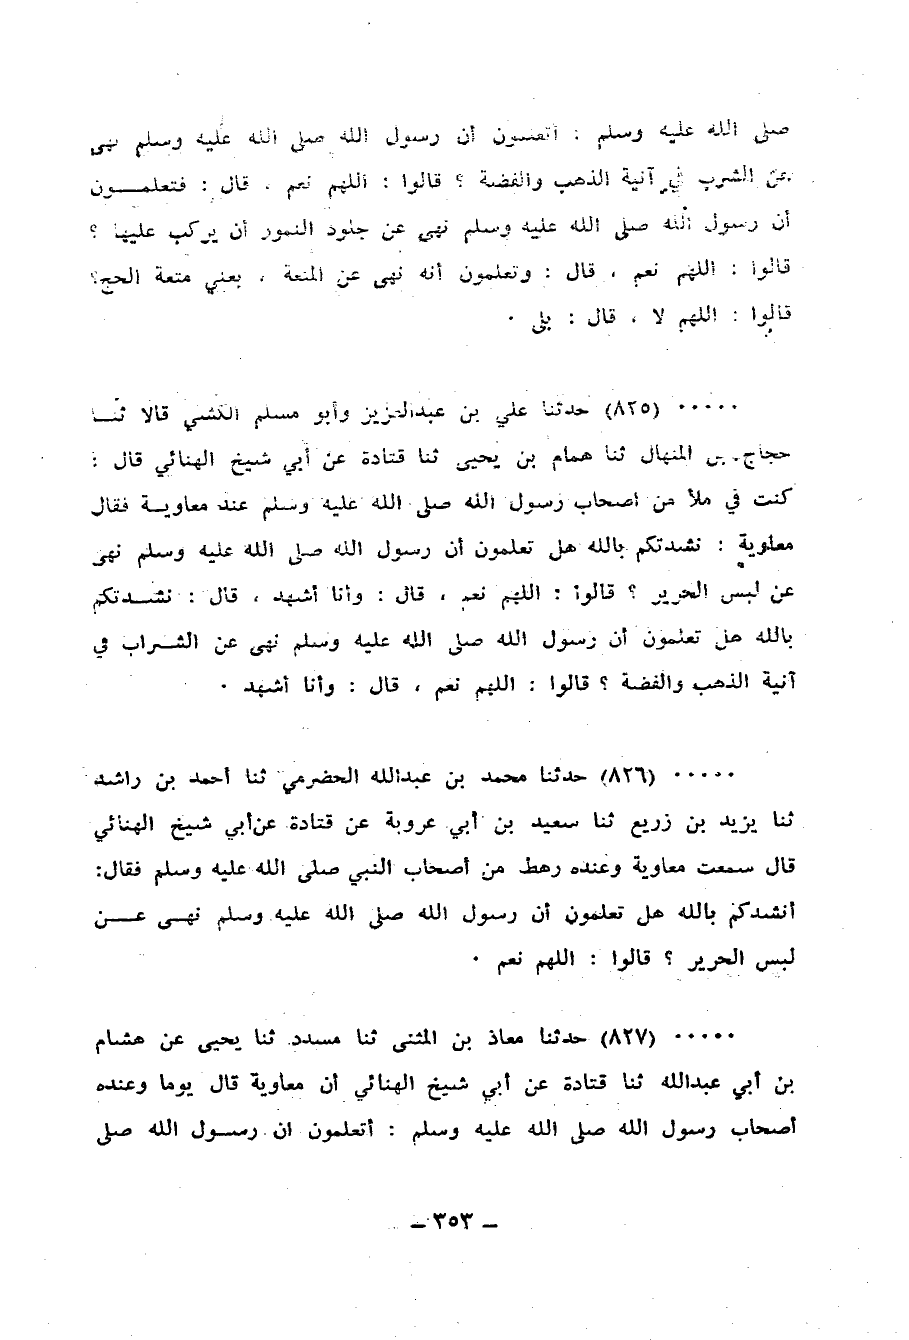 صلى الله عليه وسلم : أتعلمون أن رسول الله صلى الله عليه وسلم نهى
عن الشرب في آنية الذهب والفضة ؟ قالوا : اللهم نعم ، قال : فتعلمـــون
أن رسول الله صلى الله عليه وسلم نهى عن جلود النمور أن يركب عليها ؟
قالوا : اللهم نعم ، قال : وتعلمون أنه نهى عن المتعة ، يعني متعة الحج؟
قالوا : اللهم لا ، قال : بلى ٠
٠٠٠٠٠ (٨٢٥) حدثنا علي بن عبدالعزيز وأبو مسلم الكشي قالا ثنـــا
حجاج بن المنهال ثنا همام بن يحيى ثنا قتادة عن أبي شيخ الهنائي قال :
كنت في ملأ من اصحاب رسول الله صلى الله عليه وسلم عند معاويــة فقال
معاوية : نشدتكم بالله هل تعلمون أن رسول الله صلى الله عليه وسلم نهى
عن لبس الحرير ؟ قالوا : اللهم نعم ، قال : وأنا أشهد ، قال : نشــدتكم
بالله هل تعلمون أن رسول الله صلى الله عليه وسلم نهى عن الشــراب في
آنية الذهب والفضة ؟ قالوا : اللهم نعم ، قال : وأنا أشهد ٠
٠٠٠٠٠ (٨٢٦) حدثنا محمد بن عبدالله الحضرمي ثنا أحمد بن راشد
ثنا يزيد بن زريع ثنا سعيد بن أبي عروبة عن قتادة عن أبي شيخ الهنائي
قال سمعت معاوية وعنده رهط من أصحاب النبي صلى الله عليه وسلم فقال:
أنشدكم بالله هل تعلمون أن رسول الله صلى الله عليه وسلم نهــى عـــن
لبس الحرير ؟ قالوا : اللهم نعم ٠
٠٠٠٠٠ (٨٢٧) حدثنا معاذ بن المثنى ثنا مسدد ثنا يحيى عن هشام
بن أبي عبدالله ثنا قتادة عن أبي شيخ الهنائي أن معاوية قال يوما وعنده
أصحاب رسول الله صلى الله عليه وسلم : أتعلمون ان رســول الله صلى
ــ ٣٥٣ ــ